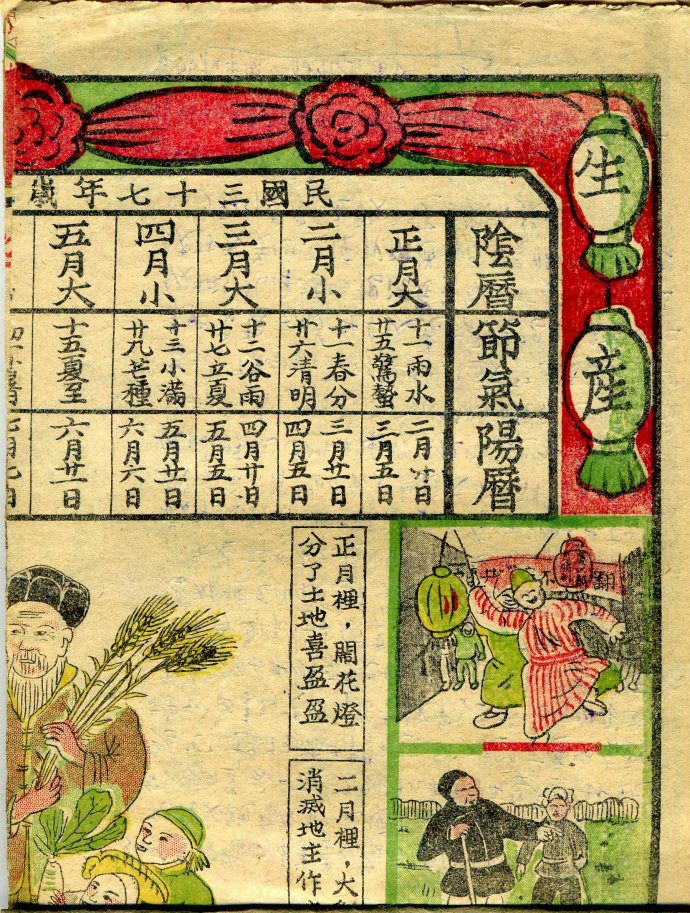 生産
民國三十七年歲
陰曆
節氣
陽曆
正月大
十一雨水
廿五驚蟄
二月廿日
三月五日
二月小
十一春分
廿六清明
三月廿一日
四月五日
三月大
十二谷雨
廿七立夏
四月廿日
五月五日
四月小
十三小滿
廿九芒種
五月廿一日
六月六日
五月大
十五夏至
六月廿一日
正月裡，開花燈
分了土地喜盈盈
二月裡，大
消滅地主作